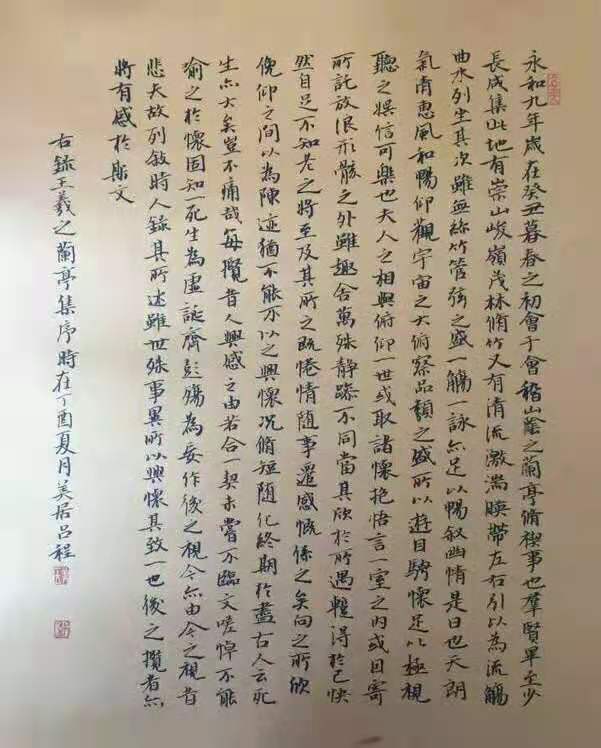 永和九年歲在癸丑暮春之初會于會稽山蔭之蘭亭脩禊事也羣賢畢至少
長咸集此地有崇山峻嶺茂林脩竹又有清流激湍暎帶左右引以為流觴
曲水列坐其次雖無絲竹管弦之盛一觴一詠亦足以暢叙幽情是日也天朗
氣清惠風和暢仰觀宇宙之大俯察品類之盛所以遊目騁懷足以極視
聽之娛信可樂也夫人之相與俯仰一世或取諸懷抱悟言一室之内或因寄
所託放浪形骸之外雖趣舍萬殊靜躁不同當其欣於所遇蹔得於己快
然自足不知老之將至及其所之既惓情隨事遷感慨係之矣向之所欣
俛仰之間以為陳迹猶不能不以之興懷況脩短隨化終期於盡古人云死
生亦大矣豈不痛哉每攬昔人興感之由若合一契未嘗不臨文嗟悼不能
喻之於懷固知一死生為虛誕齊彭殤為妄作後之視今亦由今之視昔
悲夫故列敘時人錄其所述雖世殊事異所以興懷其致一也後之攬者亦
將有感於斯文
右錄王羲之蘭亭集序時在丁酉夏月美居呂程